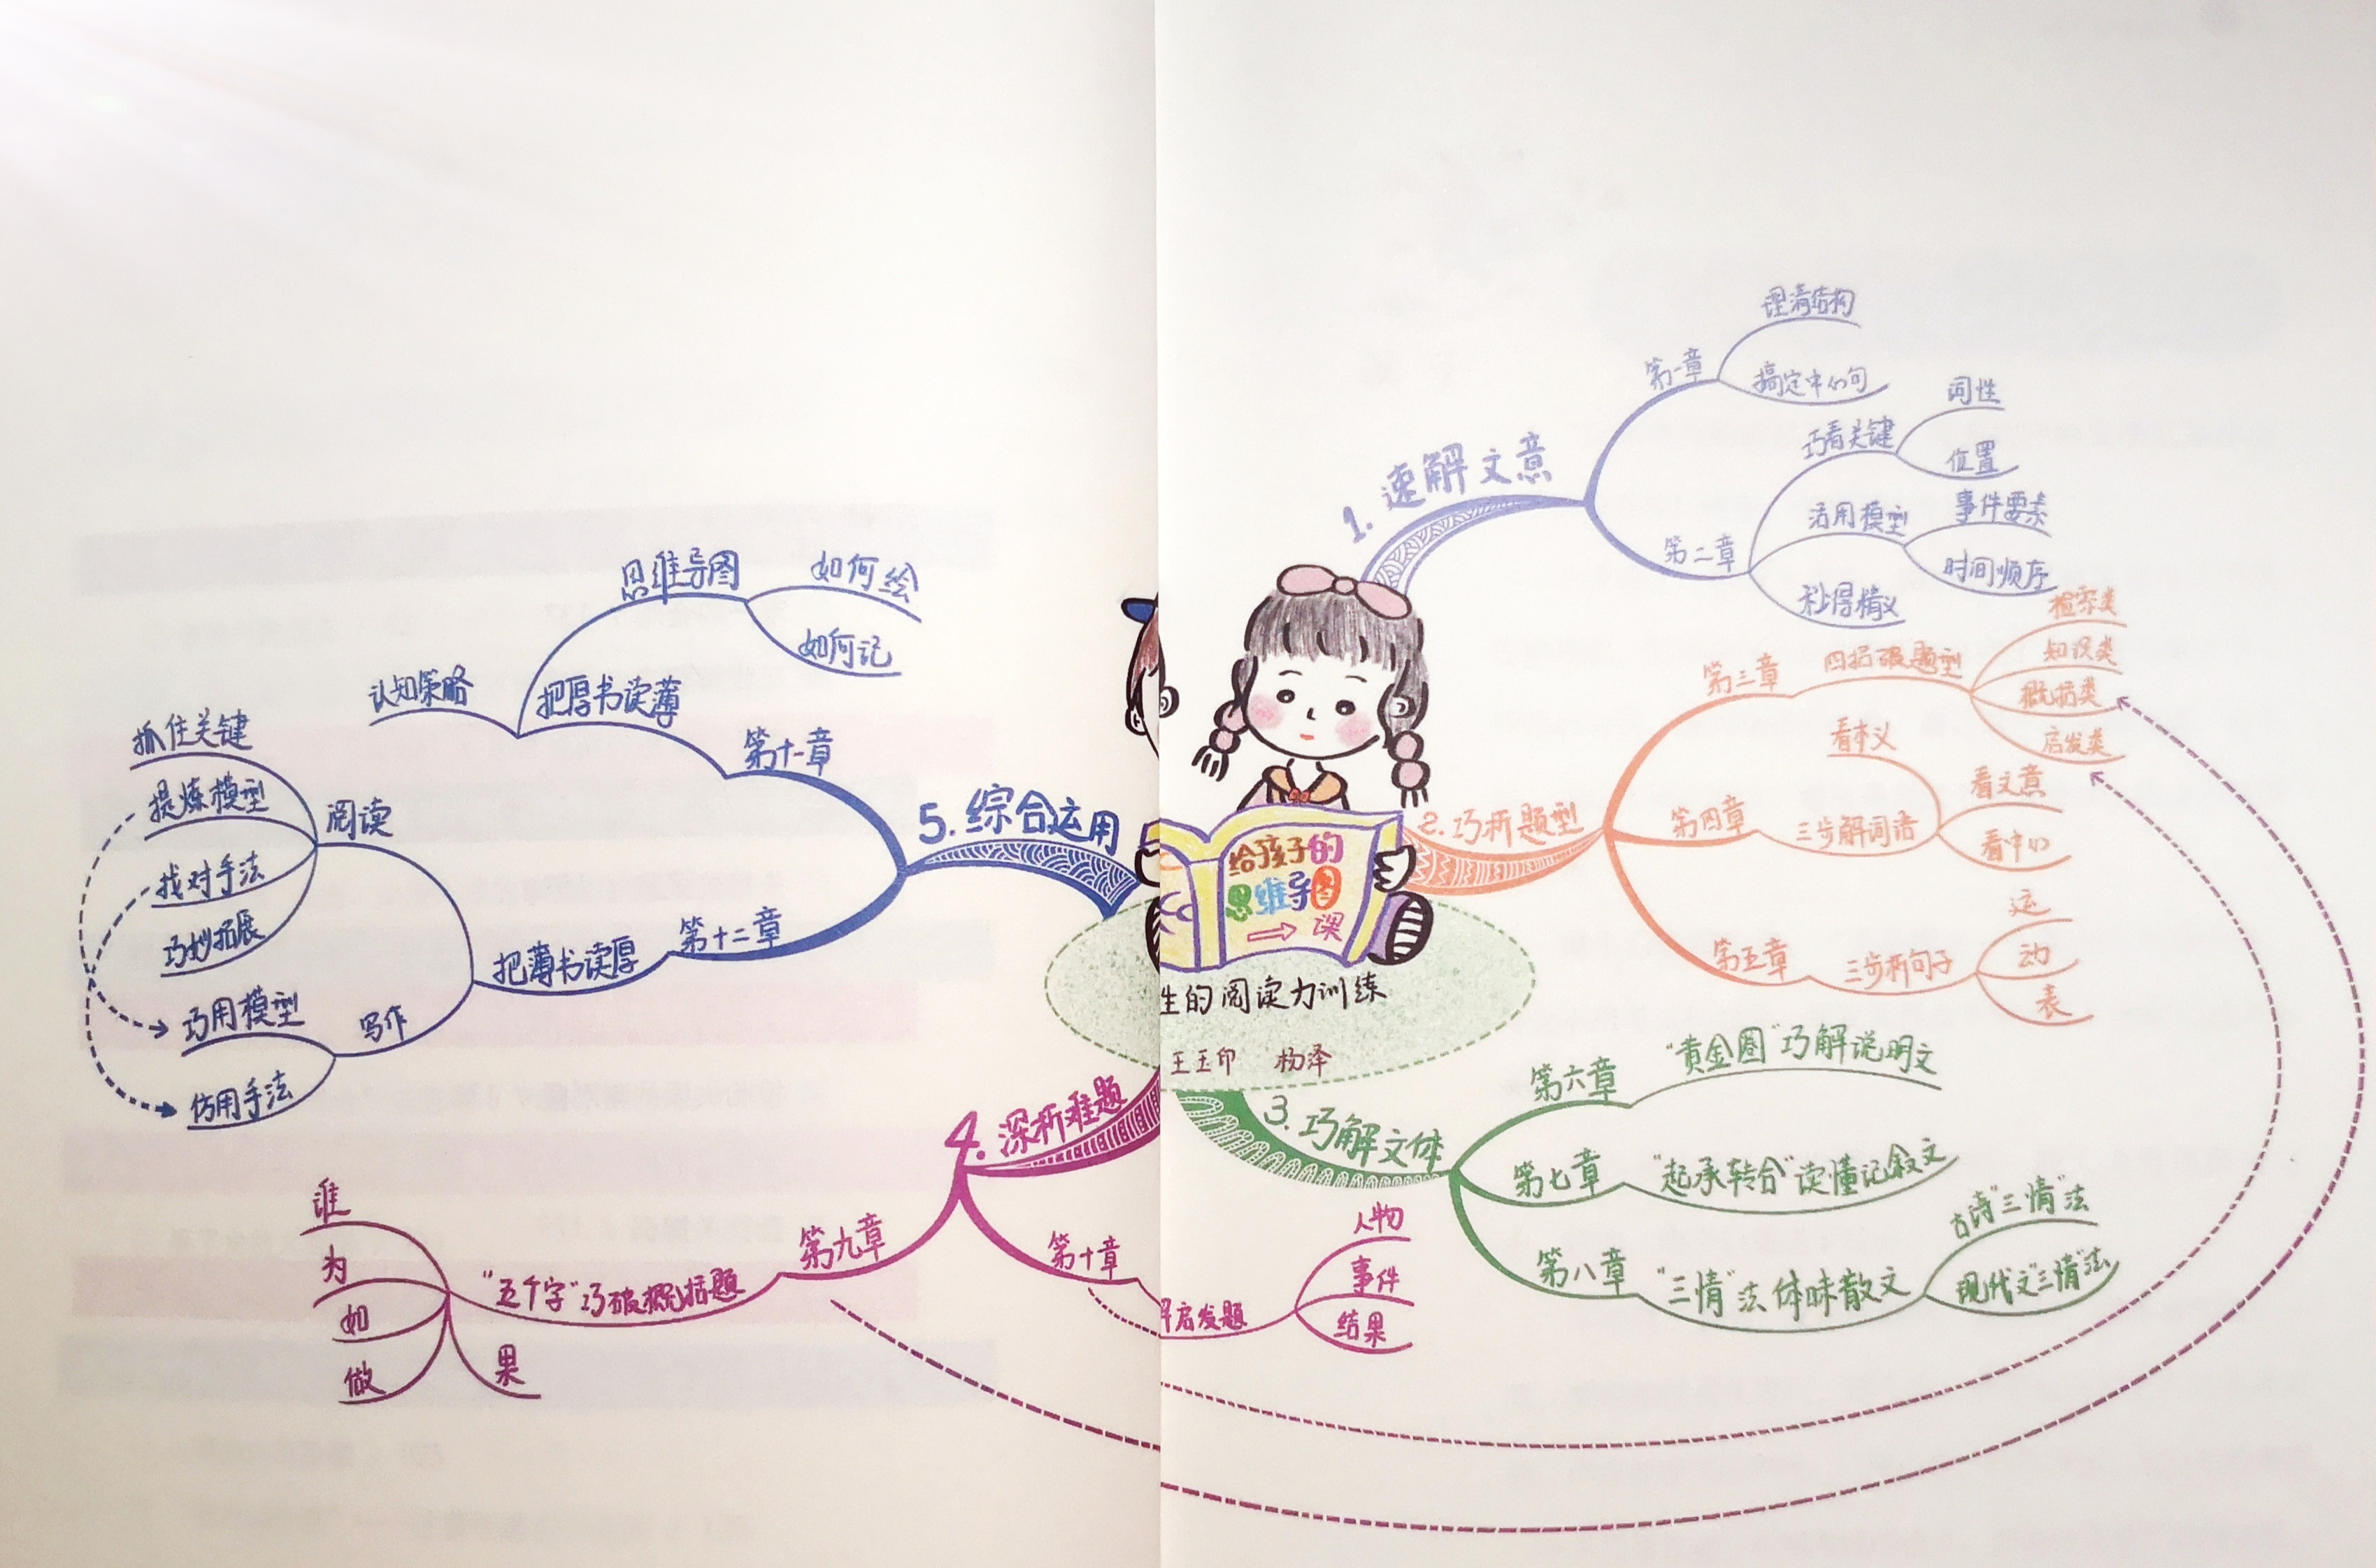 给孩子的
思维导图
课
生的阅读力训练
王玉印 杨泽
1. 速解文意
第一章
理清结构
搞定中心句
第二章
巧看关键
词性
位置
活用模型
事件要素
时间顺序
2. 巧析题型
第三章
四招破题型
检索类
知识类
概括类
启发类
第四章
三步解词语
看本义
看文意
看中心
第五章
三步析句子
运
动
表
3. 巧解文体
第六章
“黄金圈”巧解说明文
第七章
“起承转合”读懂记叙文
第八章
“三情”法体味散文
古诗“三情”法
现代文“三情”法
4. 深析难题
第九章
“五个字”巧破概括题
谁
为
如
做
果
第十章
启发题
人物
事件
结果
5. 综合运用
第十一章
把厚书读薄
思维导图
如何绘
如何记
认知策略
第十二章
把薄书读厚
阅读
抓住关键
提炼模型
找对手法
巧妙拓展
写作
巧用模型
仿用手法